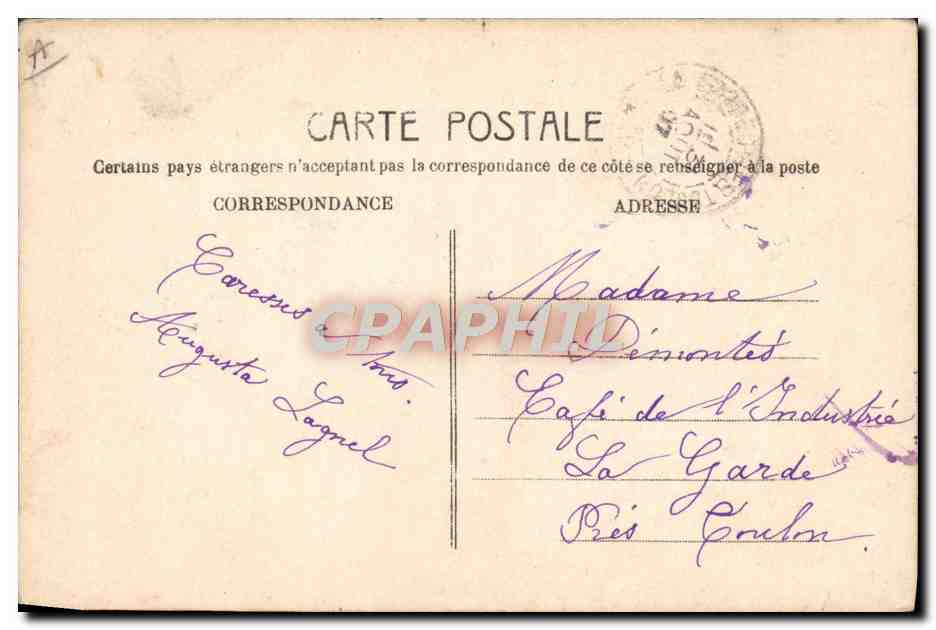 A
CARTE POSTALE
Certains pays étrangers n'acceptant pas la correspondance de ce côté se renseigner à la poste
CORRESPONDANCE
ADRESSE
Caresses a tous.
Augusta Lagnel
Madame
Pémontés
Café de l'Industrie
La Garde
Près Toulon.
CPAPHIL
13
AOUT
07